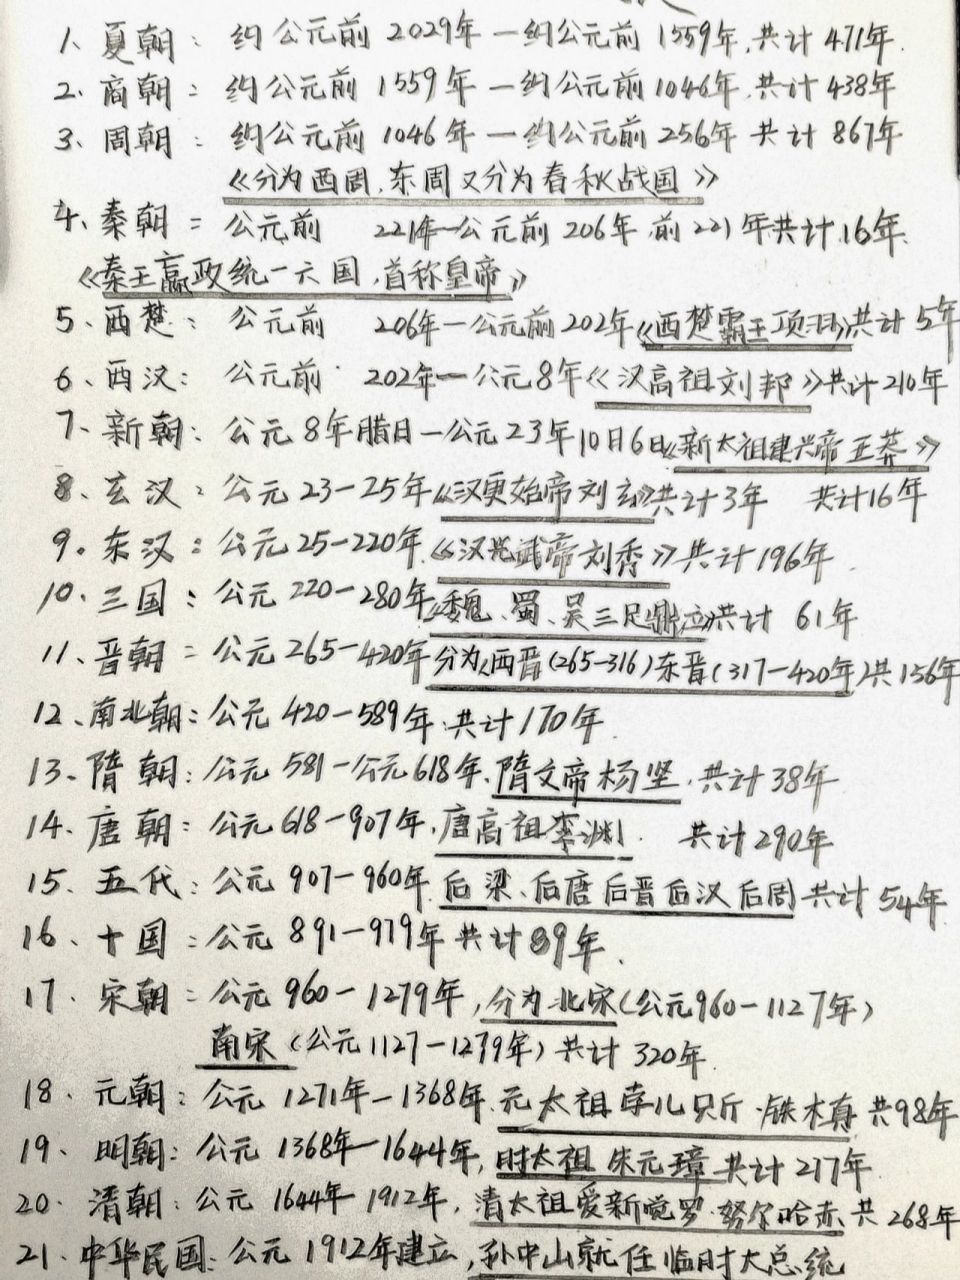 1、夏朝：约公元前2029年—约公元前1559年,共计471年.
2、商朝：约公元前1559年—约公元前1046年.共计438年
3、周朝：约公元前1046年—约公元前256年 共计867年
《分为西周,东周又分为春秋《战国》
4、秦朝：公元前 221年—公元前206年 前221年共计16年.
《秦王嬴政统一六国,首称皇帝》
5、西楚：公元前 206年—公元前202年《西楚霸王项羽》共计5年
6、西汉：公元前 202年—公元8年《汉高祖刘邦》共计210年
7、新朝：公元8年腊日—公元23年10月6日《新太祖建兴帝王莽》
8、玄汉：公元23—25年《汉更始帝刘玄》共计3年 共计16年
9、东汉：公元25—220年《汉光武帝刘秀》共计196年.
10、三国：公元220—280年《魏、蜀、吴三足鼎立》共计 61年
11、晋朝：公元265—420年分为《西晋(265-316)东晋(317-420年)共156年
12、南北朝：公元420—589年.共计170年.
13、隋朝：公元581—公元618年.隋文帝杨坚.共计38年
14、唐朝：公元618—907年,唐高祖李渊. 共计290年
15、五代：公元907—960年.后梁、后唐后晋后汉后周共计54年
16、十国：公元891—979年共计89年.
17、宋朝：公元960—1279年,分为北宋(公元960—1127年)
南宋(公元1127—1279年)共计320年.
18、元朝：公元1271年—1368年.元太祖孛儿只斤·铁木真共98年
19、明朝：公元1368年—1644年,明太祖朱元璋共计277年
20、清朝：公元1644年—1912年,清太祖爱新觉罗·努尔哈赤共268年
21、中华民国：公元1912年建立,孙中山就任临时大总统